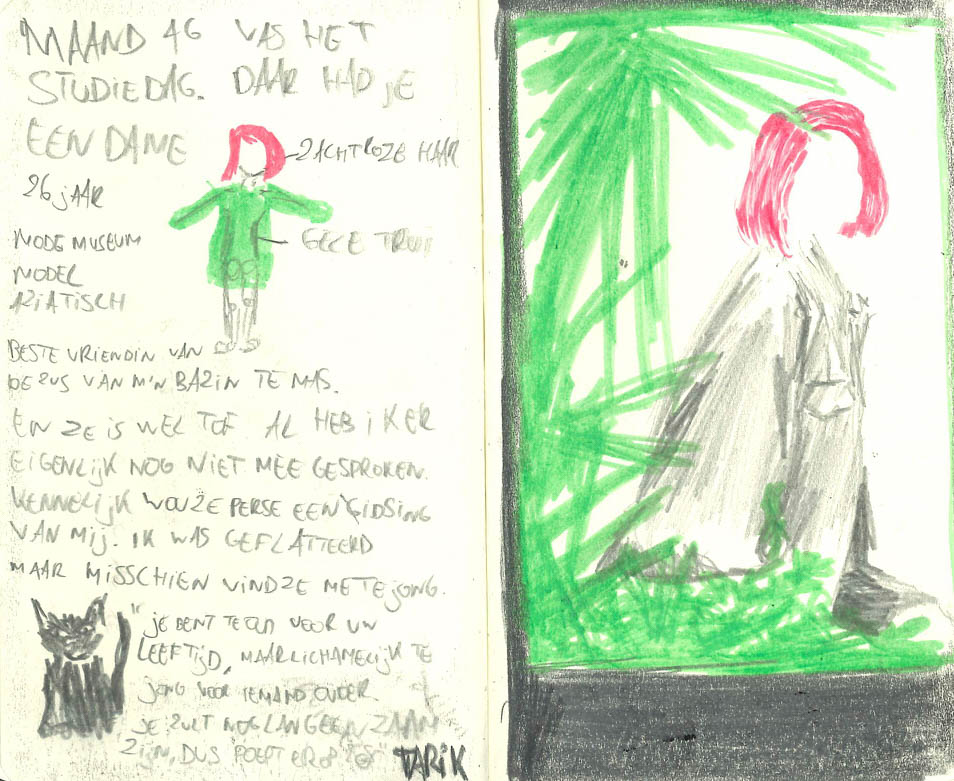 MAAND 46 WAS HET
STUDIEDAG. DAAR HAD JE
EEN DAME
ZACHTROZE HAAR
26 jAAR
GELE TRUI
MODE MUSEUM
MODEL
AZIATISCH
BESTE VRIENDIN VAN
DE ZUS VAN M'N BAZIN TE MAS.
EN ZE IS WEL TOF AL HEB iK ER
EIGENLIJK NOG NIET MEE GESPROKEN.
KENNELIJK WOU ZE PERSE EEN GIDSING
VAN Mij. IK WAS GEFLATTEERD
MAAR MISSCHIEN VIND ZE ME TE jONG.
"jE BENT TE OUD VOOR UW
LEEFTijD, MAAR LICHAMELIJK TE
jONG VOOR IEMAND OUDER.
JE ZULT NOG LANG EENZAAM
ZIJN, DUS
TARIK